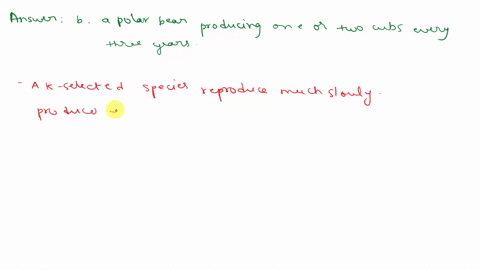 Answer: b. a polar bear producing one or two cubs every
three years.
- A k-selected species reproduce much slowly.
produce